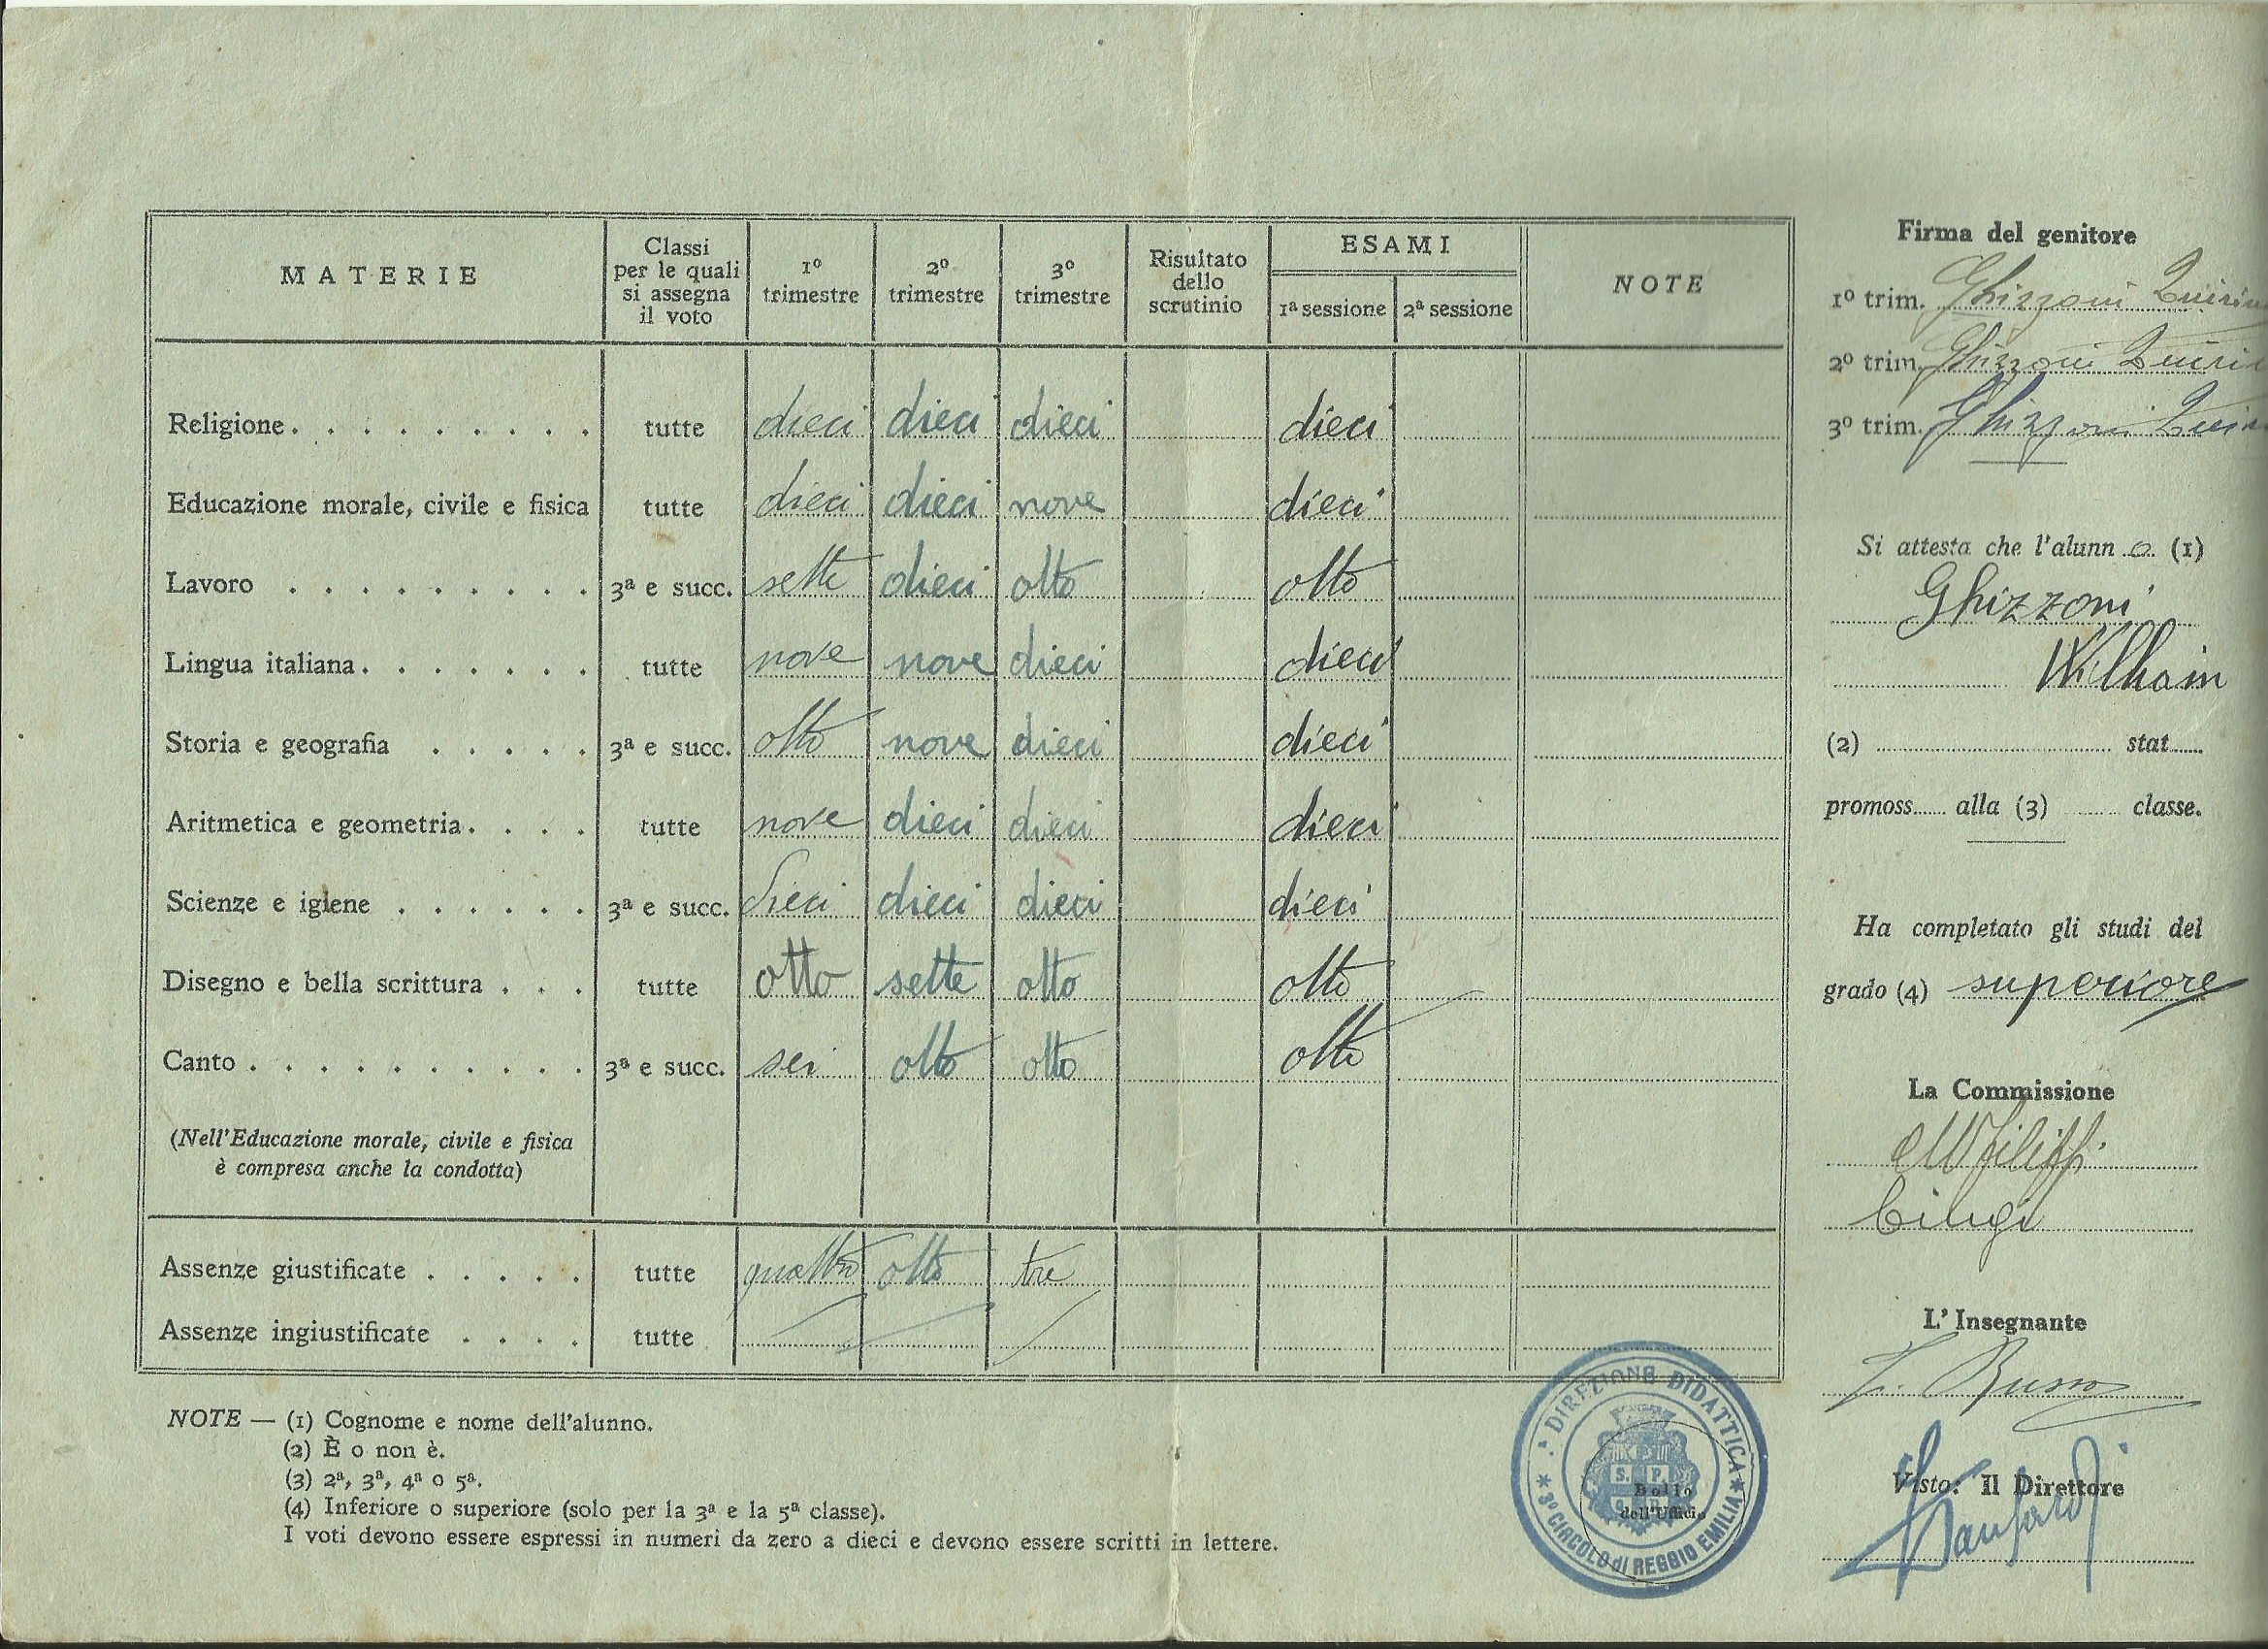 MATERIE Classi per le quali si assegna il voto 1º trimestre 2º trimestre 3º trimestre Risultato dello scrutinio ESAMI 1ª sessione 2ª sessione NOTE
Religione. . . . . . . . . tutte dieci dieci dieci dieci
Educazione morale, civile e fisica tutte dieci dieci nove dieci
Lavoro . . . . . . . . . 3ª e succ. sette dieci otto otto
Lingua italiana. . . . . . . tutte nove nove dieci dieci
Storia e geografia . . . . . 3ª e succ. otto nove dieci dieci
Aritmetica e geometria. . . . tutte nove dieci dieci dieci
Scienze e igiene . . . . . . 3ª e succ. dieci dieci dieci dieci
Disegno e bella scrittura . . . tutte otto sette otto otto
Canto . . . . . . . . . . 3ª e succ. sei otto otto otto
(Nell'Educazione morale, civile e fisica
è compresa anche la condotta)
Assenze giustificate . . . . . tutte quattro otto tre
Assenze ingiustificate . . . . tutte
NOTE — (1) Cognome e nome dell'alunno.
(2) È o non è.
(3) 2ª, 3ª, 4ª o 5ª.
(4) Inferiore o superiore (solo per la 3ª e la 5ª classe).
I voti devono essere espressi in numeri da zero a dieci e devono essere scritti in lettere.
DIREZIONE DIDATTICA
3º CIRCOLO di REGGIO EMILIA
S. P.
Bollo
dell'Ufficio
Firma del genitore
1º trim. Ghizzoni
2º trim. Ghizzoni
3º trim. Ghizzoni
Si attesta che l'alunn o (1)
Ghizzoni
William
(2) stat
promoss alla (3) classe.
Ha completato gli studi del
grado (4) superiore
La Commissione
L'Insegnante
Russo
Visto: Il Direttore